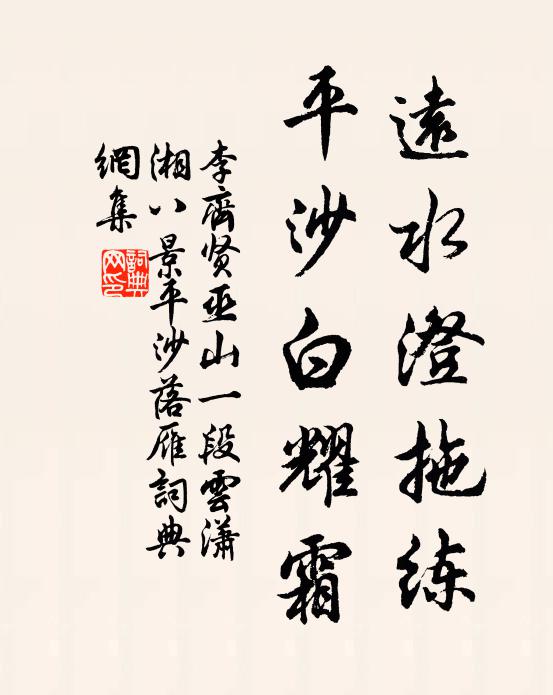 遠水澄拖练
平沙白耀霜
李齊贤巫山一段雲瀟
湘八景平沙落雁詞典
網集
詞典网印